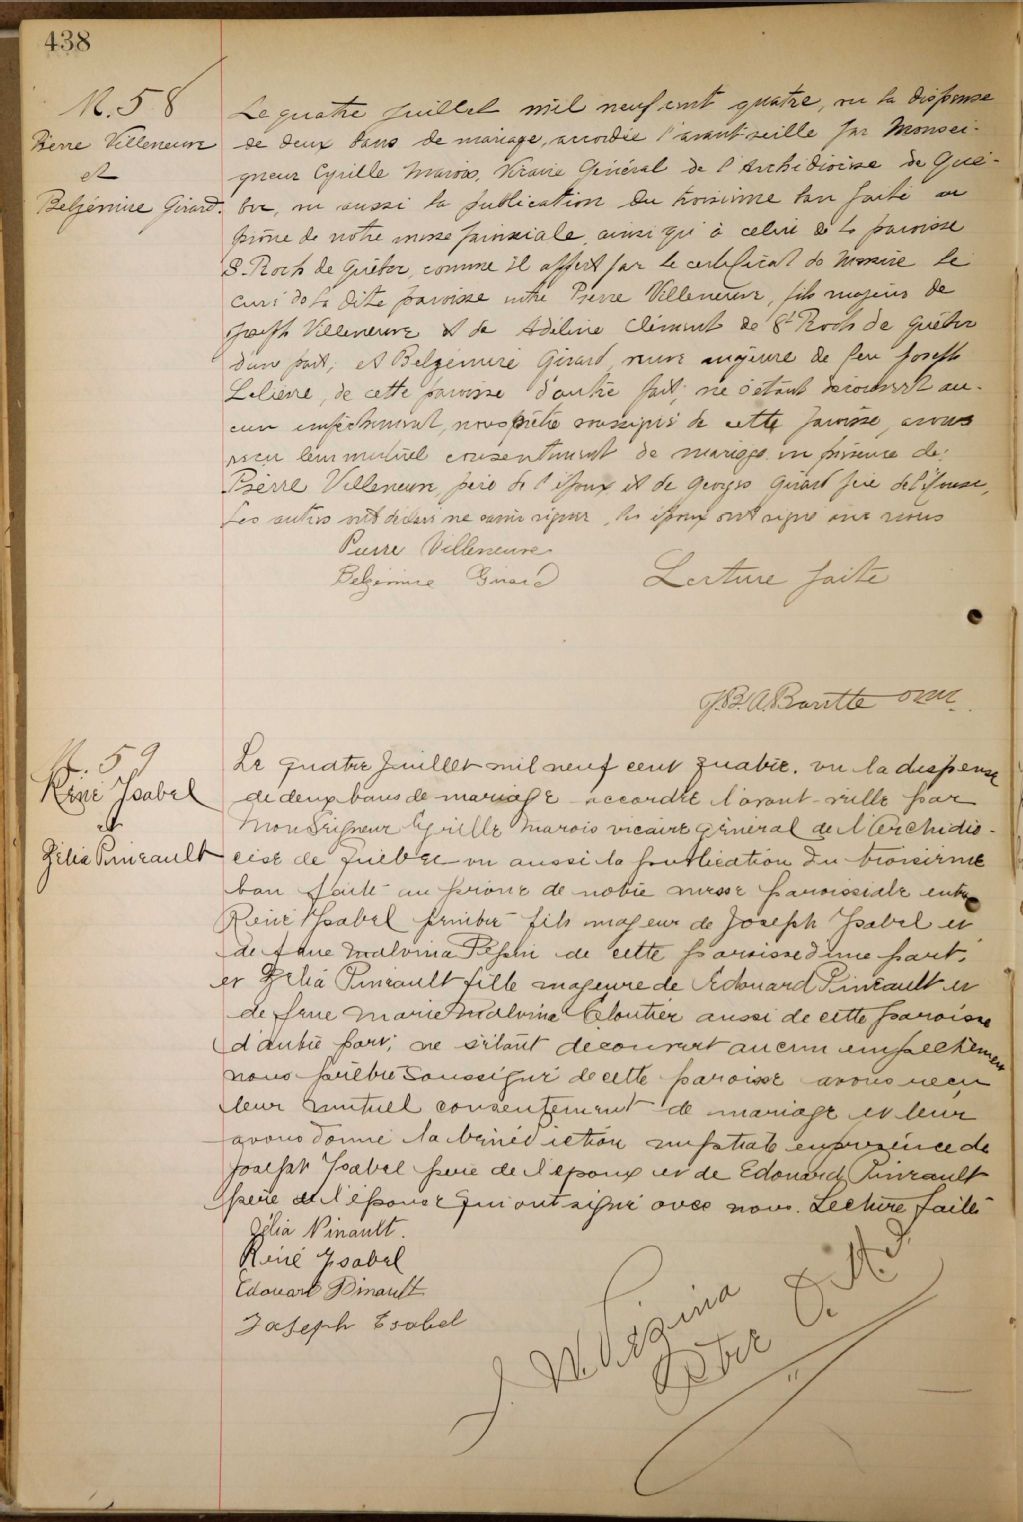 438
M. 58
Pierre Villeneuve
et
Belzémire Girard.
Le quatre Juillet mil neuf cent quatre, vu la dispense
de deux bans de mariage, accordée l'avant-veille par Monsei-
gneur Cyrille Marois, Vicaire Général de l'Archidiocèse de Qué-
bec, vu aussi la publication du troisième ban faite au
prône de notre messe paroissiale, ainsi qu'à celui de la paroisse
S. Roch de Québec, comme il appert par le certificat de Messire le
curé de la dite paroisse entre Pierre Villeneuve, fils majeur de
Joseph Villeneuve et de Adéline Clément de St Roch de Québec
d'une part; et Belzémire Girard, veuve majeure de feu Joseph
Lelièvre, de cette paroisse d'autre part; ne s'étant découvert au-
cun empêchement, nous prêtre soussigné de cette paroisse, avons
reçu leur mutuel consentement de mariage en présence de:
Pierre Villeneuve père de l'époux et de Georges Girard de l'épouse,
Les autres ont déclaré ne savoir signer, les époux ont signé avec nous
Pierre Villeneuve
Belzémire Girard
Lecture faite
J.B.A. Barette omi.
M. 59
René Ysabel
et
Zélia Pineault
Le quatre Juillet mil neuf cent quatre, vu la dispense
de deux bans de mariage accordée l'avant-veille par
Monseigneur Cyrille Marois vicaire général de l'Archidio-
cèse de Québec vu aussi la publication du troisième
ban faite au prône de notre messe paroissiale entre
René Ysabel peintre fils majeur de Joseph Ysabel et
de feue Malvina Pépin de cette paroisse d'une part,
et Zélia Pineault fille majeure de Edouard Pineault et
de feue Marie Malvina Cloutier aussi de cette paroisse
d'autre part; ne s'étant découvert aucun empêchement
nous prêtre soussigné de cette paroisse avons reçu
leur mutuel consentement de mariage et leur
avons donné la bénédiction nuptiale en présence de
Joseph Ysabel père de l'époux et de Edouard Pineault
père de l'épouse qui ont signé avec nous. Lecture faite
Zélia Pinault.
René Ysabel
Edouard Pinault
Joseph Esabel
J. W. Vézina
Ptre O. M. I.